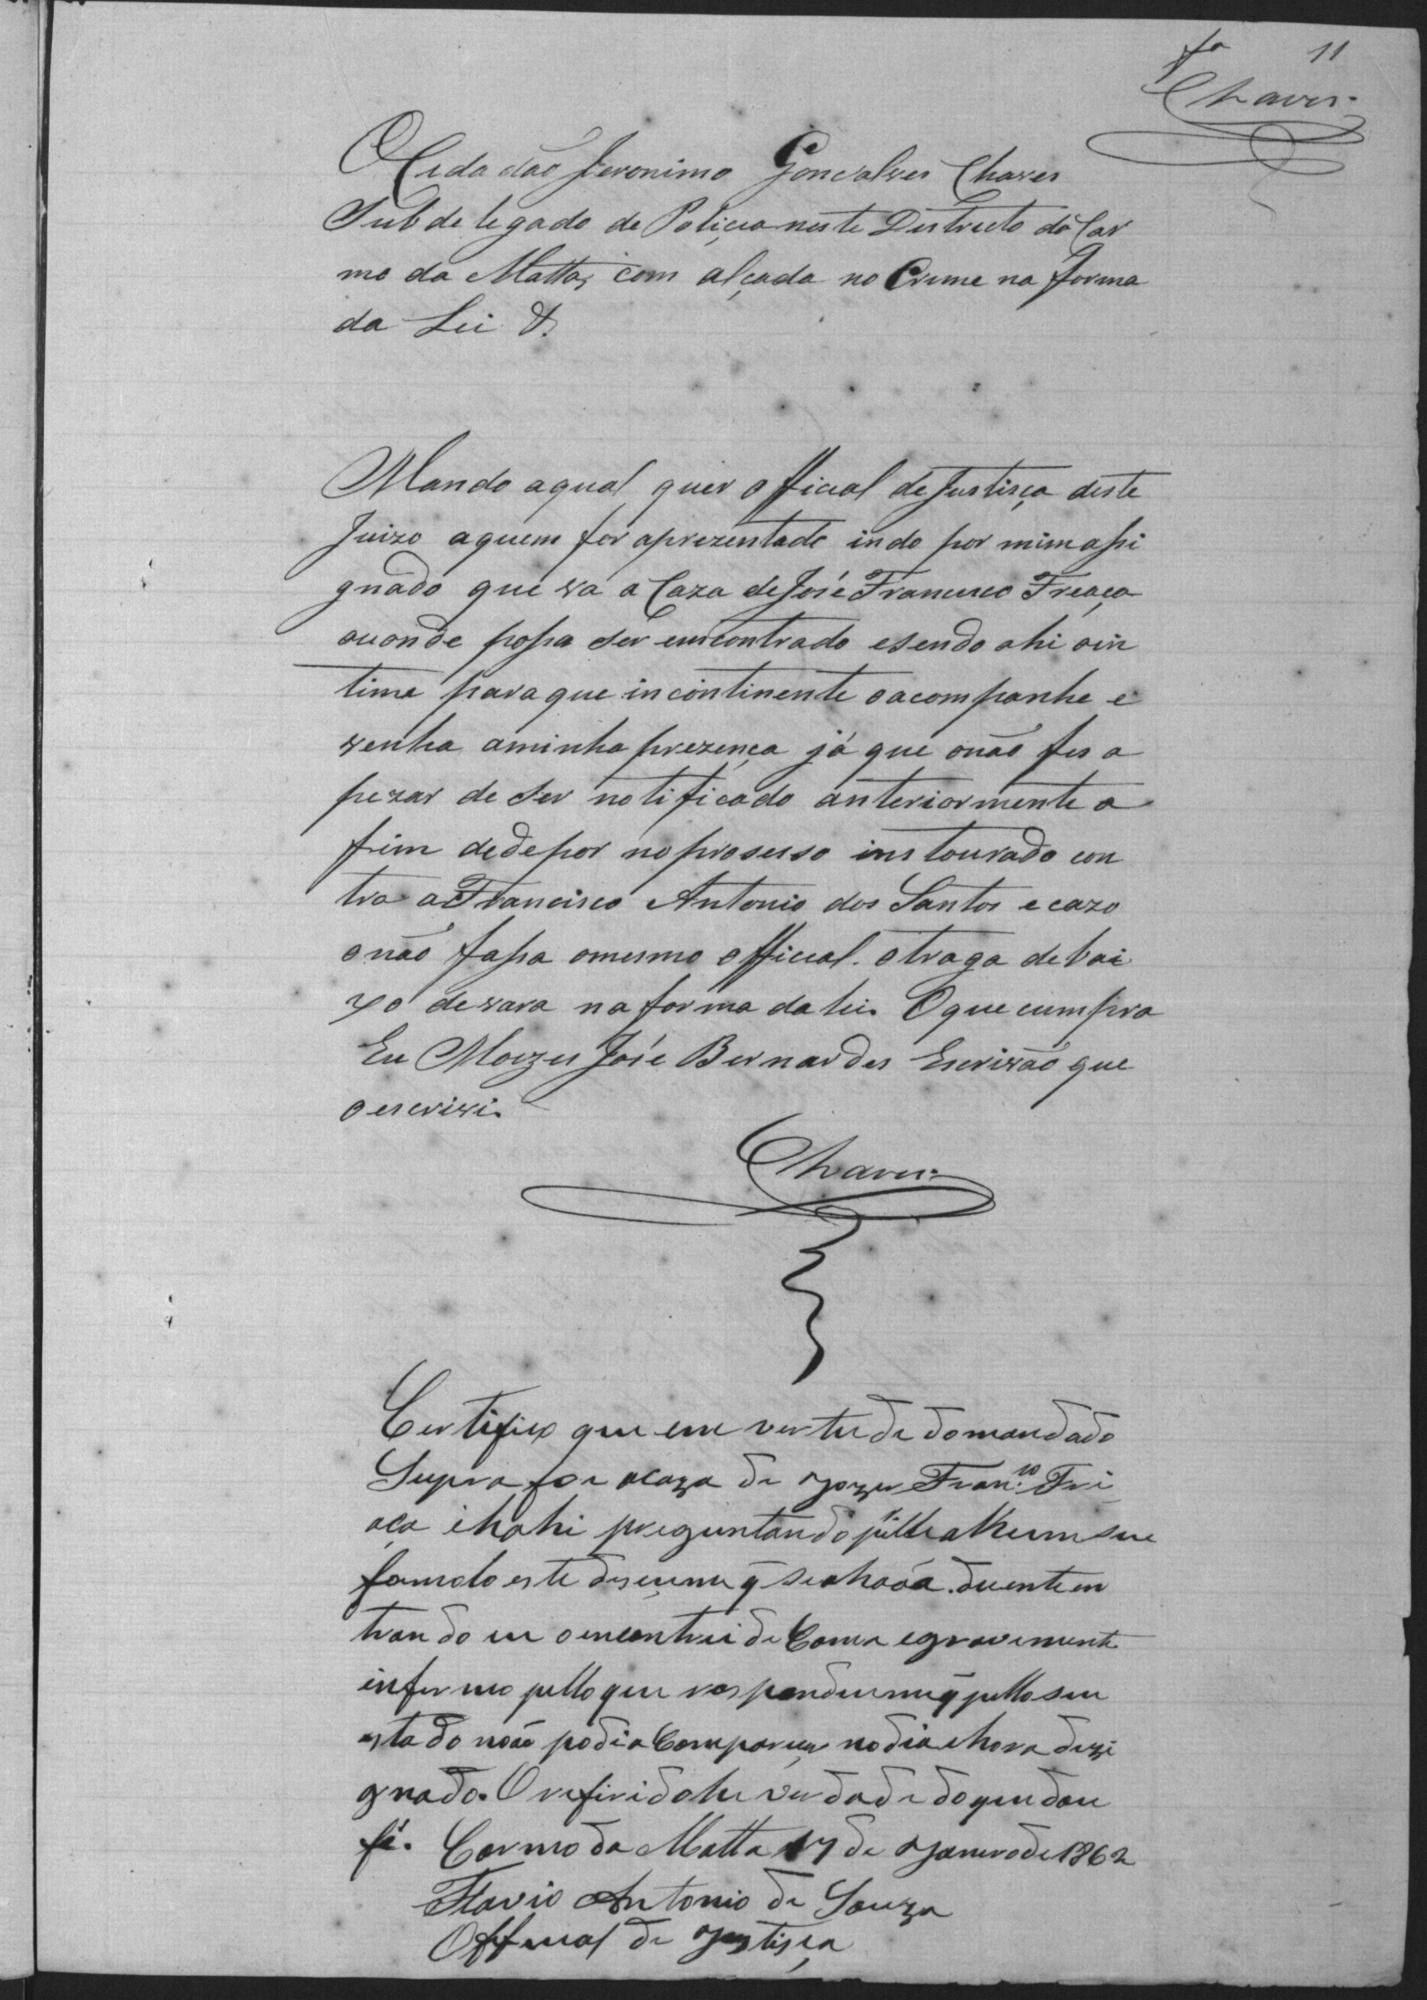 fa 11
Chaves
O Cidadão Jeronimo Gonçalves Chaves
Subdelegado de Policia neste Destricto do Car
mo da Matta, com alçada no Crime na forma
da Lei &.
Mando aqual quer official de Justisça deste
Juizo aquem for aprezentado indo por mim assi
gnado que va a Caza de José Francisco Freaça
ou onde possa ser emcontrado esendo ahi oin
time para que incontinente o acompanhe e
venha aminha prezença já que onão fes a
pezar de ser notificado anteriormente a
fim dedepor no prosesso instourado con
tra a Francisco Antonio dos Santos e cazo
onão fassa omesmo official o traga debai
xo devara na forma da lei. O que cumpra
Eu Moizes José Bernardes Escrivão que
o escrivi.
Chaves
Certifico que em vertude do mandado
Supra foi acaza de Jozer Fran.co Fri
aça ehahi preguntando pelle a hum seu
famolo este disçeme q̃ se ahava duente en
trando eu o encontrei de Cama egravemente
infermo pello que respondeume q̃ pello seu
estado não podia Compareçer no dia ehora dezi
gnado. O refirido he verdade do que dou
fé. Carmo da Matta 17 de Janero de 1862
Flavio Antonio de Souza
Official de Justisça